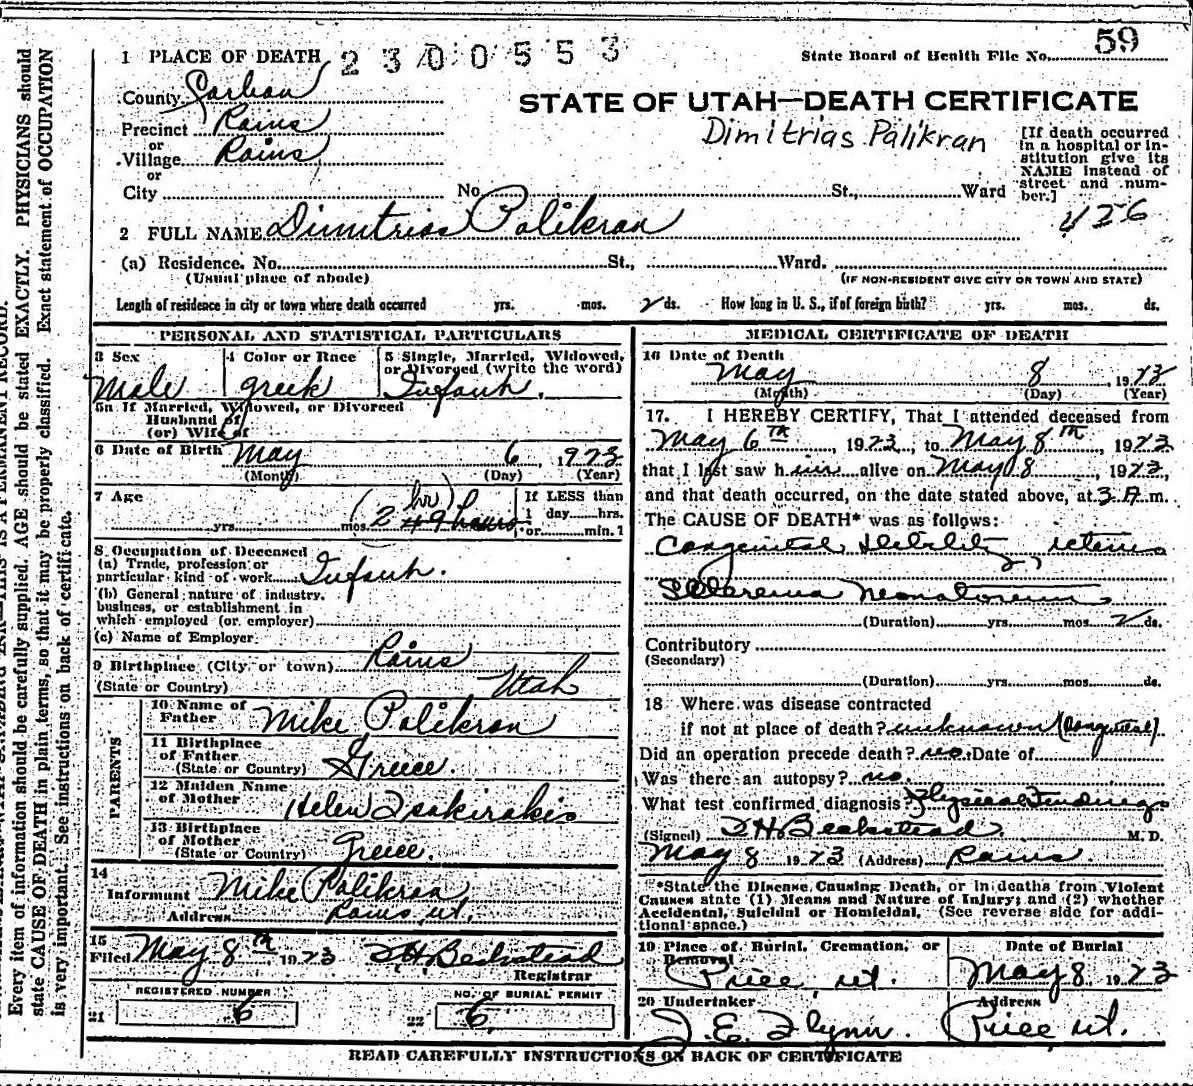 59
1 PLACE OF DEATH 2300553 State Board of Health File No.
County Carbon
STATE OF UTAH—DEATH CERTIFICATE
Precinct Rains
Dimitrias Palikran
or
Village Rains
or
City No. St., Ward
[If death occurred
in a hospital or in-
stitution give its
NAME instead of
street and num-
ber.]
426
2 FULL NAME Dimitrias Palikran
(a) Residence. No. St., Ward.
(Usual place of abode) (IF NON-RESIDENT GIVE CITY OR TOWN AND STATE)
Length of residence in city or town where death occurred yrs. mos. 2 ds. How long in U. S., if of foreign birth? yrs. mos. ds.
PERSONAL AND STATISTICAL PARTICULARS
3 Sex
Male
4 Color or Race
Greek
5 Single, Married, Widowed,
or Divorced (write the word)
Infant.
5a If Married, Widowed, or Divorced
Husband of
(or) Wife of
6 Date of Birth May 6, 1923
(Month) (Day) (Year)
7 Age
yrs. mos. (2 hrs) 49 hours
If LESS than
1 day hrs.
or min.?
8 Occupation of Deceased
(a) Trade, profession or
particular kind of work Infant.
(b) General nature of industry,
business, or establishment in
which employed (or employer)
(c) Name of Employer
9 Birthplace (City or town) Rains
(State or Country) Utah
PARENTS
10 Name of
Father Mike Palikran
11 Birthplace
of Father
(State or Country) Greece.
12 Maiden Name
of Mother Helen Tsakirakis
13 Birthplace
of Mother
(State or Country) Greece.
14
Informant Mike Palikran
Address Rains Ut.
15
Filed May 8th 1923 Beckstead
Registrar
REGISTERED NUMBER
21 6
NO. OF BURIAL PERMIT
22 6
MEDICAL CERTIFICATE OF DEATH
16 Date of Death
May 8, 1923
(Month) (Day) (Year)
17. I HEREBY CERTIFY, That I attended deceased from
May 6th, 1923, to May 8th, 1923
that I last saw him alive on May 8, 1923,
and that death occurred, on the date stated above, at 3 A. m.
The CAUSE OF DEATH* was as follows:
Congenital Debility, icterus
Sclerema Neonatorum
(Duration) yrs. mos. 2 ds.
Contributory
(Secondary)
(Duration) yrs. mos. ds.
18 Where was disease contracted
if not at place of death? unknown (Congenital)
Did an operation precede death? no. Date of
Was there an autopsy? no.
What test confirmed diagnosis? Physical Findings
(Signed) Beckstead M. D.
May 8 1923 (Address) Rains.
*State the Disease Causing Death, or in deaths from Violent
Causes state (1) Means and Nature of Injury; and (2) whether
Accidental, Suicidal or Homicidal. (See reverse side for addi-
tional space.)
19 Place of Burial, Cremation, or
Removal
Price Ut.
Date of Burial
May 8 1923
20 Undertaker
J. E. Flynn.
Address
Price Ut.
READ CAREFULLY INSTRUCTIONS ON BACK OF CERTIFICATE
THIS IS A PERMANENT RECORD.
Every item of information should be carefully supplied. AGE should be stated EXACTLY. PHYSICIANS should
state CAUSE OF DEATH in plain terms, so that it may be properly classified. Exact statement of OCCUPATION
is very important. See instructions on back of certificate.